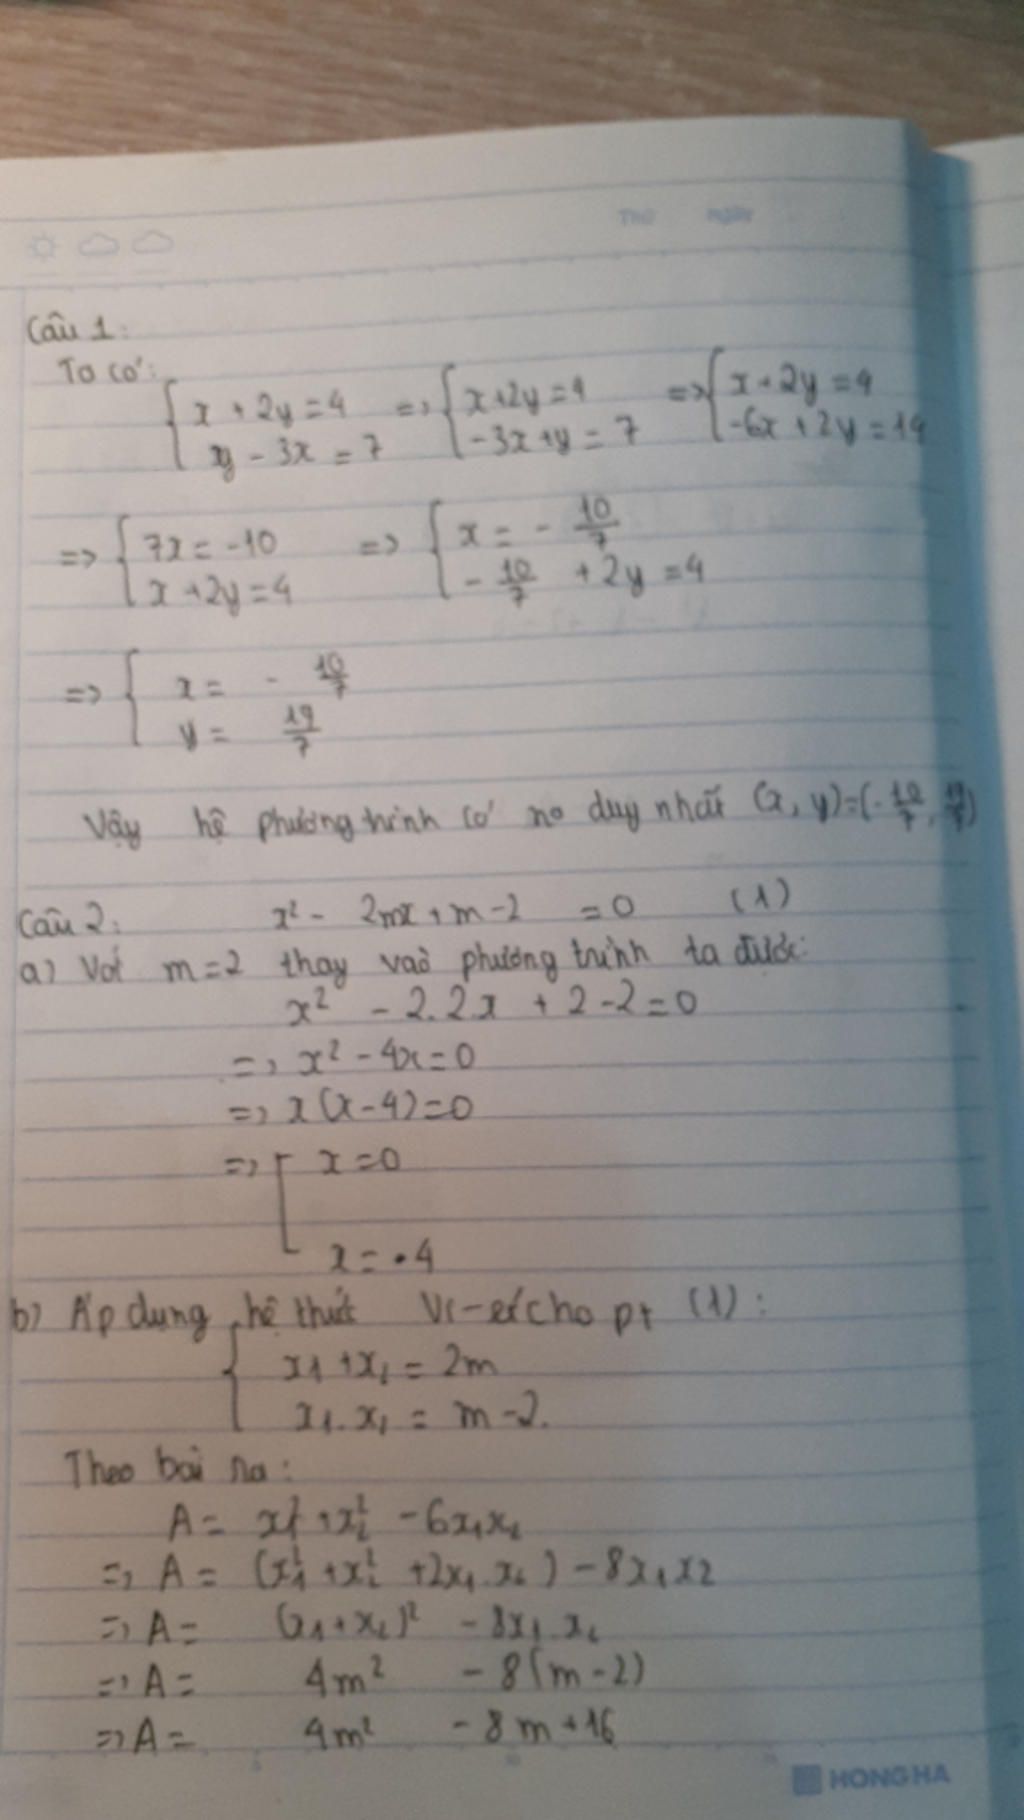 Thứ ngày
Câu 1:
Ta có:
{ x + 2y = 4 => { x + 2y = 4 => { x + 2y = 4
y - 3x = 7 -3x + y = 7 -6x + 2y = 14
=> { 7x = -10 => { x = - 10/7
x + 2y = 4 - 10/7 + 2y = 4
=> { x = - 10/7
y = 19/7
Vậy hệ phương trình có no duy nhất (x, y) = (- 10/7, 19/7)
Câu 2: x² - 2mx + m - 2 = 0 (1)
a) Với m = 2 thay vào phương trình ta được:
x² - 2.2x + 2 - 2 = 0
=> x² - 4x = 0
=> x(x - 4) = 0
=> [ x = 0
x = 4
b) Áp dụng hệ thức Vi-ét cho pt (1):
{ x₁ + x₂ = 2m
x₁.x₂ = m - 2.
Theo bài ra:
A = x₁² + x₂² - 6x₁x₂
=> A = (x₁² + x₂² + 2x₁.x₂) - 8x₁x₂
=> A = (x₁ + x₂)² - 8x₁.x₂
=> A = 4m² - 8(m - 2)
=> A = 4m² - 8m + 16
HONG HA